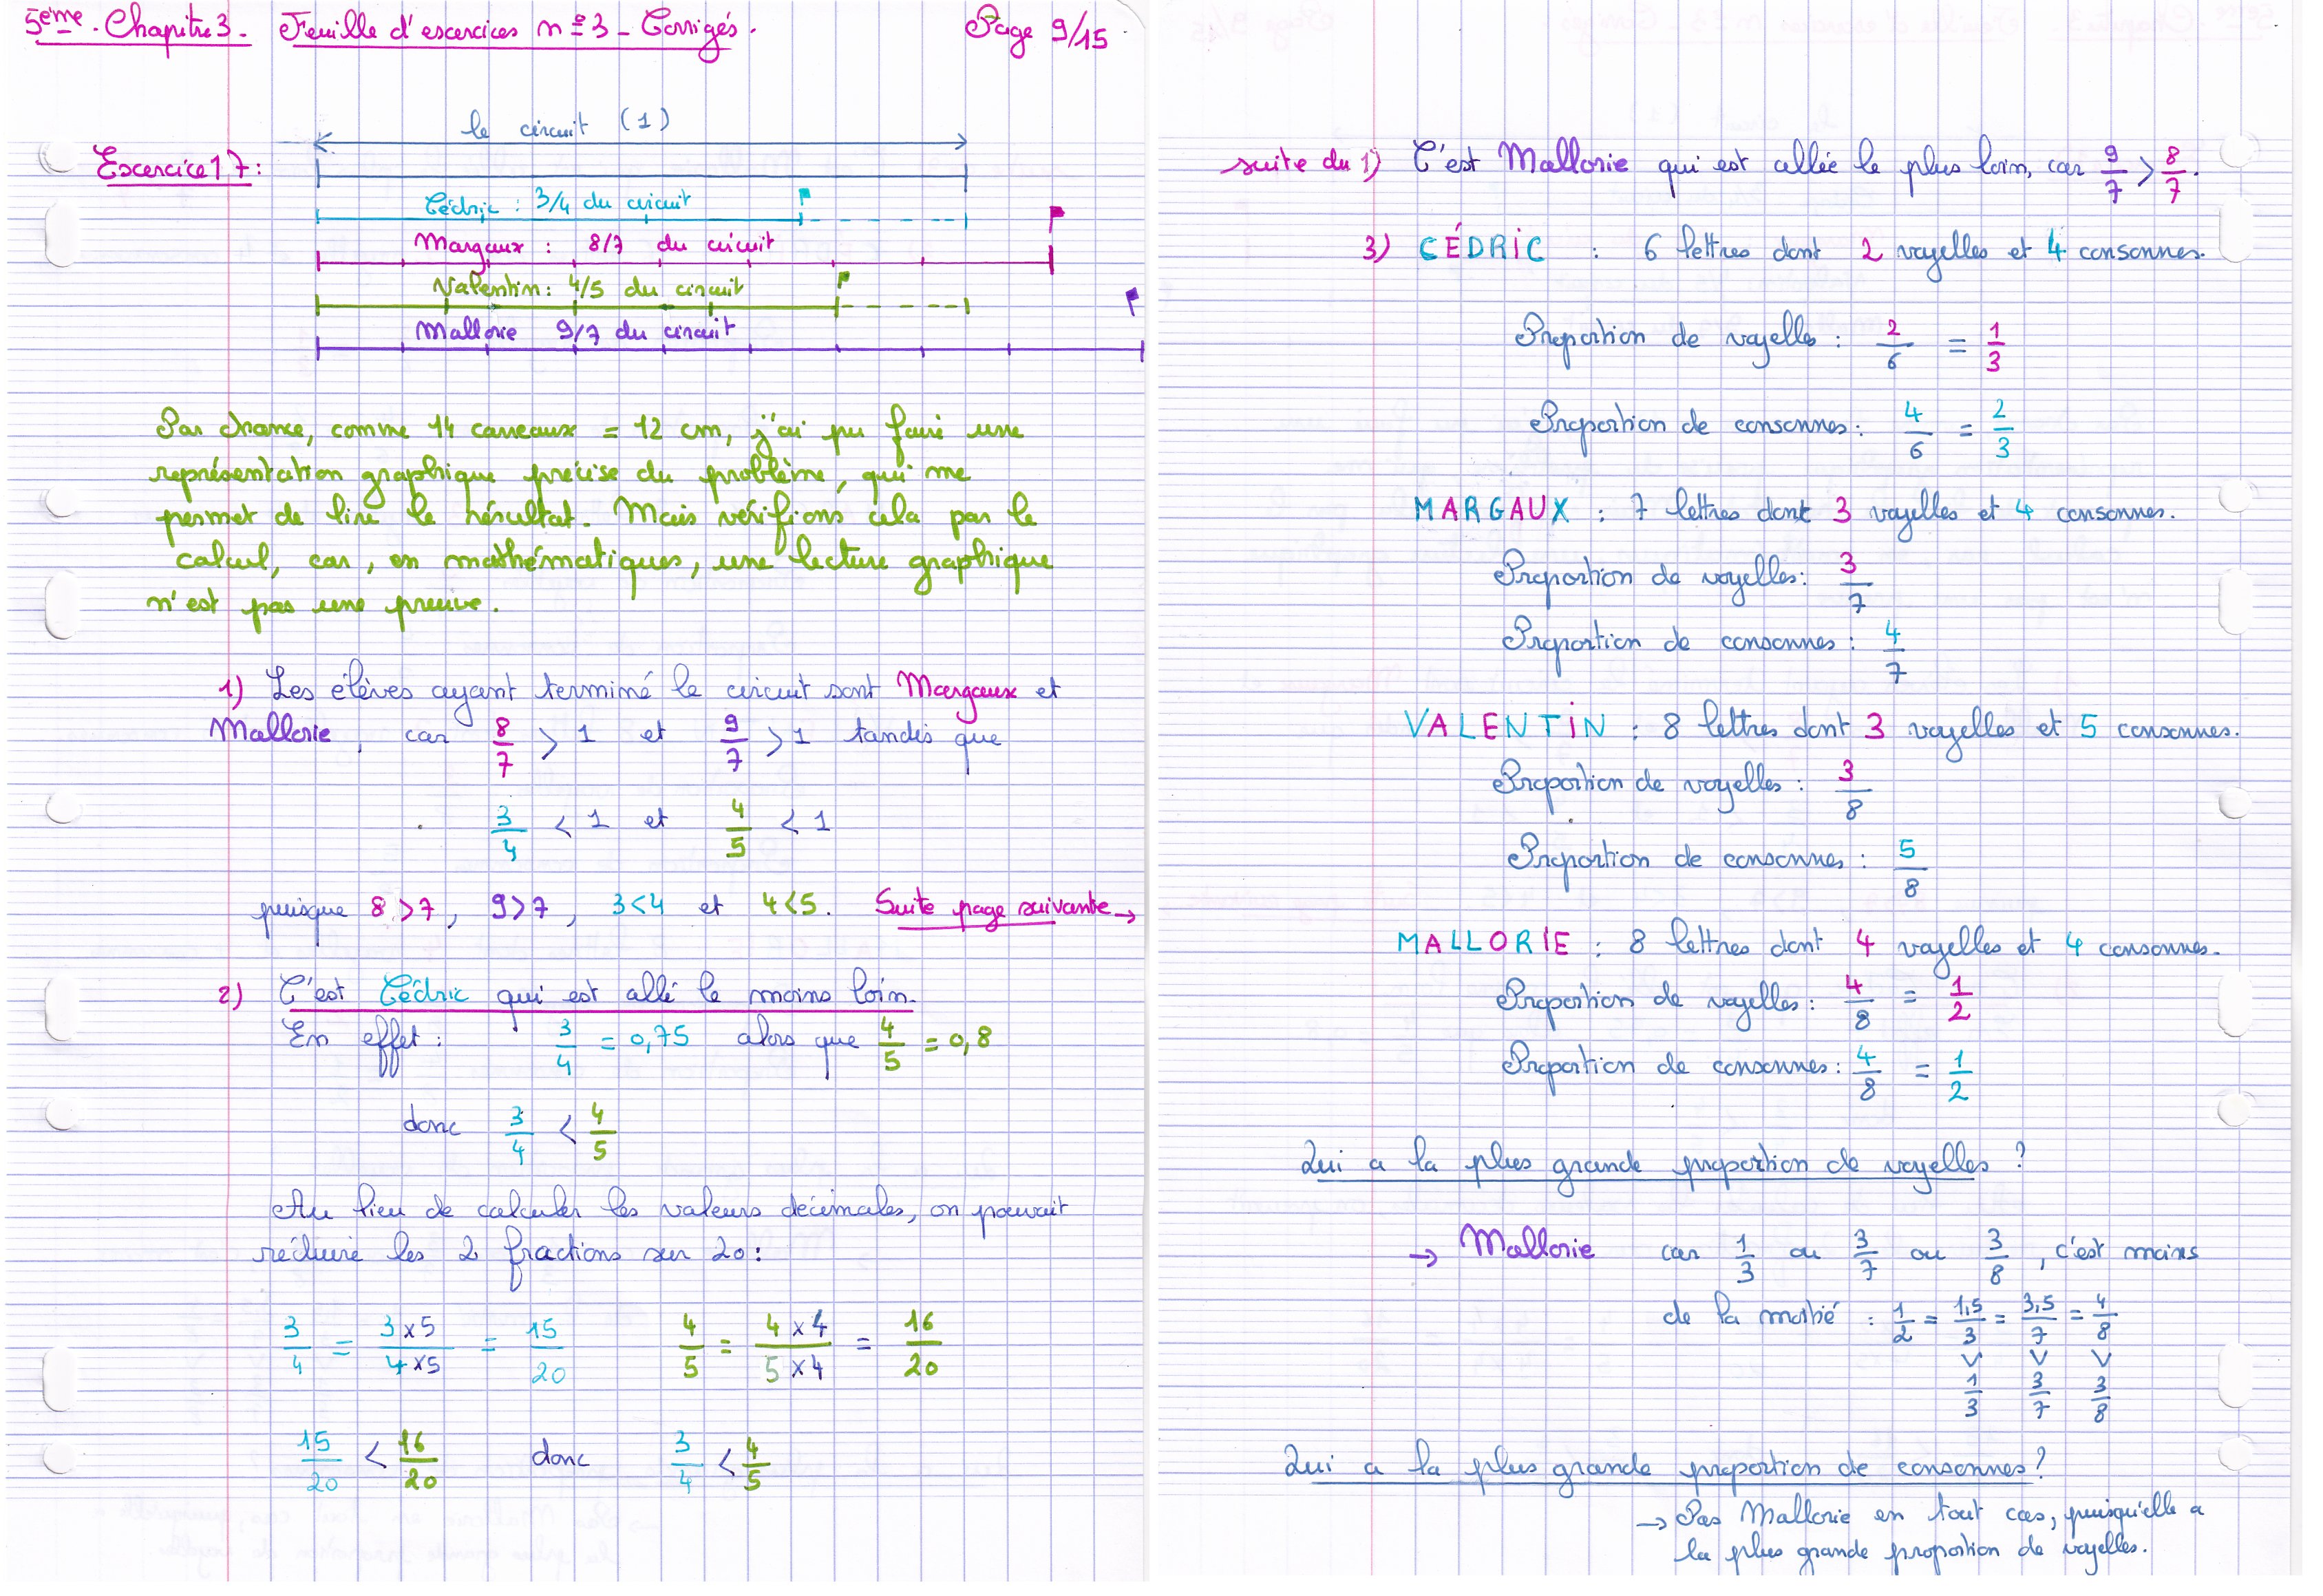 5ème. Chapitre 3. Feuille d'exercices n°3 - Corrigés. Page 9/15
le circuit (1)
Exercice 17 :
Cédric : 3/4 du circuit
Margaux : 8/7 du circuit
Valentin : 4/5 du circuit
Mallorie 9/7 du circuit
Par chance, comme 14 carreaux = 12 cm, j'ai pu faire une
représentation graphique précise du problème, qui me
permet de lire le résultat. Mais vérifions cela par le
calcul, car, en mathématiques, une lecture graphique
n'est pas une preuve.
1) Les élèves ayant terminé le circuit sont Margaux et
Mallorie, car 8/7 > 1 et 9/7 > 1 tandis que
3/4 < 1 et 4/5 < 1
puisque 8>7, 9>7, 3<4 et 4<5. Suite page suivante →
2) C'est Cédric qui est allé le moins loin.
En effet : 3/4 = 0,75 alors que 4/5 = 0,8
donc 3/4 < 4/5
Au lieu de calculer les valeurs décimales, on pouvait
réduire les 2 fractions sur 20 :
3/4 = 3×5/4×5 = 15/20 4/5 = 4×4/5×4 = 16/20
15/20 < 16/20 donc 3/4 < 4/5
suite du 1) C'est Mallorie qui est allée le plus loin, car 9/7 > 8/7.
3) CÉDRIC : 6 lettres dont 2 voyelles et 4 consonnes.
Proportion de voyelles : 2/6 = 1/3
Proportion de consonnes : 4/6 = 2/3
MARGAUX : 7 lettres dont 3 voyelles et 4 consonnes.
Proportion de voyelles : 3/7
Proportion de consonnes : 4/7
VALENTIN : 8 lettres dont 3 voyelles et 5 consonnes.
Proportion de voyelles : 3/8
Proportion de consonnes : 5/8
MALLORIE : 8 lettres dont 4 voyelles et 4 consonnes.
Proportion de voyelles : 4/8 = 1/2
Proportion de consonnes : 4/8 = 1/2
Qui a la plus grande proportion de voyelles ?
→ Mallorie car 1/3 ou 3/7 ou 3/8, c'est moins
de la moitié : 1/2 = 1,5/3 = 3,5/7 = 4/8
V V V
1/3 3/7 3/8
Qui a la plus grande proportion de consonnes ?
→ Pas Mallorie en tout cas, puisqu'elle a
la plus grande proportion de voyelles.